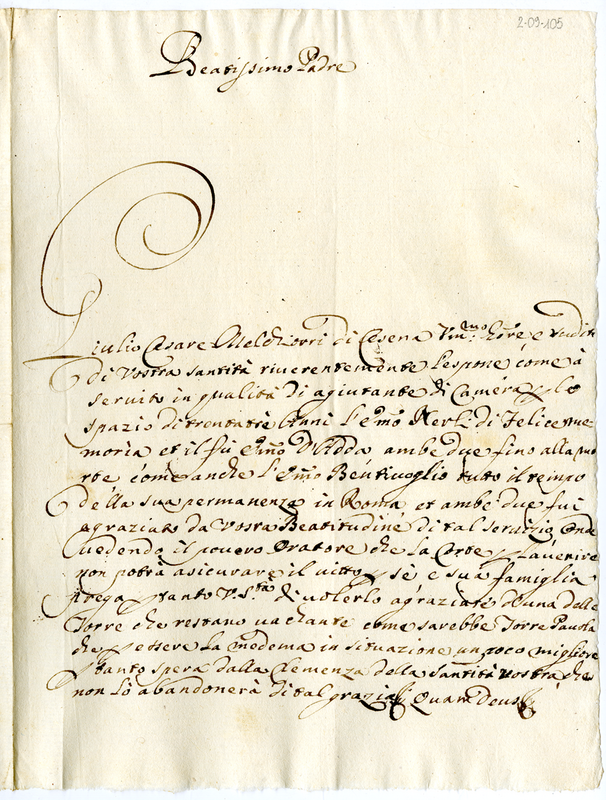 2-09-105
Beatissimo Padre
Giulio Cesare Melchiorri di Cesena Um.mo Ore e Suddito
di Vostra Santità riverentemente l'espone come à
servito in qualità di agiutante di Camera p lo
spazio di trentatrè Anni l'emo Nerli di felice me
moria et il fù emo D'Adda ambe due fino alla mo
rte come anche l'emo Bentivoglio tutto il tempo
della sua permanenza in Roma, et ambe due fui
agraziato da Vostra Beatitudine di tal servizio onde
vedendo il povero Oratore che la Corte p l'avenire
non potrà asicurare il vitto p sè e sua famiglia
prega p tanto V. S.tà di volerlo agraziare d'una delle
Torre che restano vachante come sarebbe Torre Pavola
che p essere la medema in situazione un poco migliore
p tanto spera dalla Clemenza della Santità Vostra che
non lo abandonerà di tal grazia Quam Deus